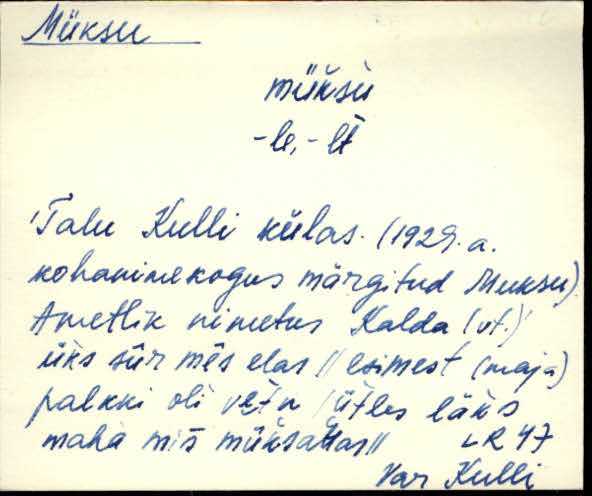 Müksu
müksù
-le, -lt̄
'Talu Kulli külas. (1929. a.
kohanimekogus märgitud Muksu).
Ametlik nimetus Kalda (vt.)'
üks sūr mēs elas // esimest (maja)
palkki oli vet̄n / ütles läks
maha mis̄ müksattas //
LR 47
Var Kulli